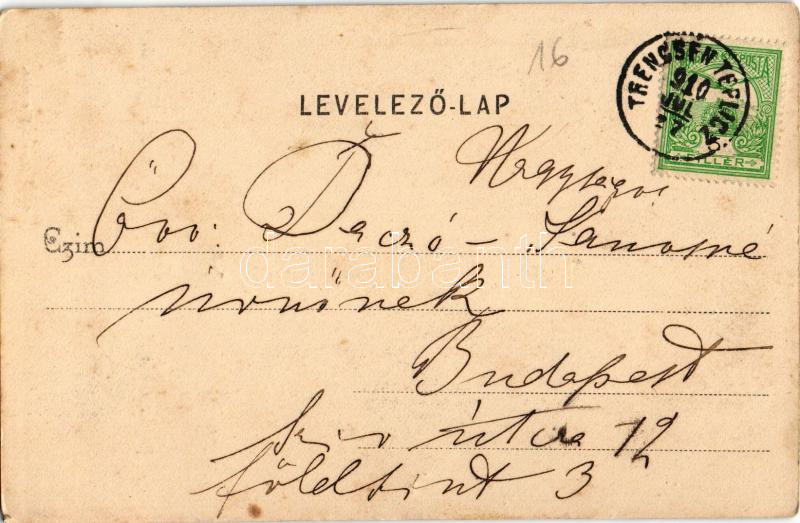 16
LEVELEZŐ-LAP
TRENCSÉN TEPLICZ
910
POSTA
FILLÉR
Nagyságos
Czim Özv: Daczó - Jánosné
úrnőnek
Budapest
Sziv útca 19
földszint 3
darabanth